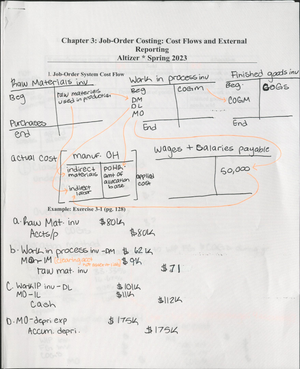 Chapter 3: Job-Order Costing: Cost Flows and External
Reporting
Altizer * Spring 2023
1. Job-Order System Cost Flow
Raw Materials inv
Work in process inv
Finished goods inv
Beg
raw materials
used in production
Purchases
End
Beg
DM
DL
MO
COGM
End
Beg
COGM
COGS
End
actual cost
manuf. OH
indirect
materials
indirect
labor
POHR
amt of
allocation
base
applied
cost
Wages + Salaries payable
50,000
Example: Exercise 3-1 (pg. 128)
a. Raw Mat. inv $80K
Accts/p $80K
b. Work in process inv - DM $62K
MO - IM $9K
raw mat. inv $71
C. Work IP inv - DL $101K
MO - IL $11K
Cash $112K
D. MO - depri exp $175K
Accum. depri. $175K